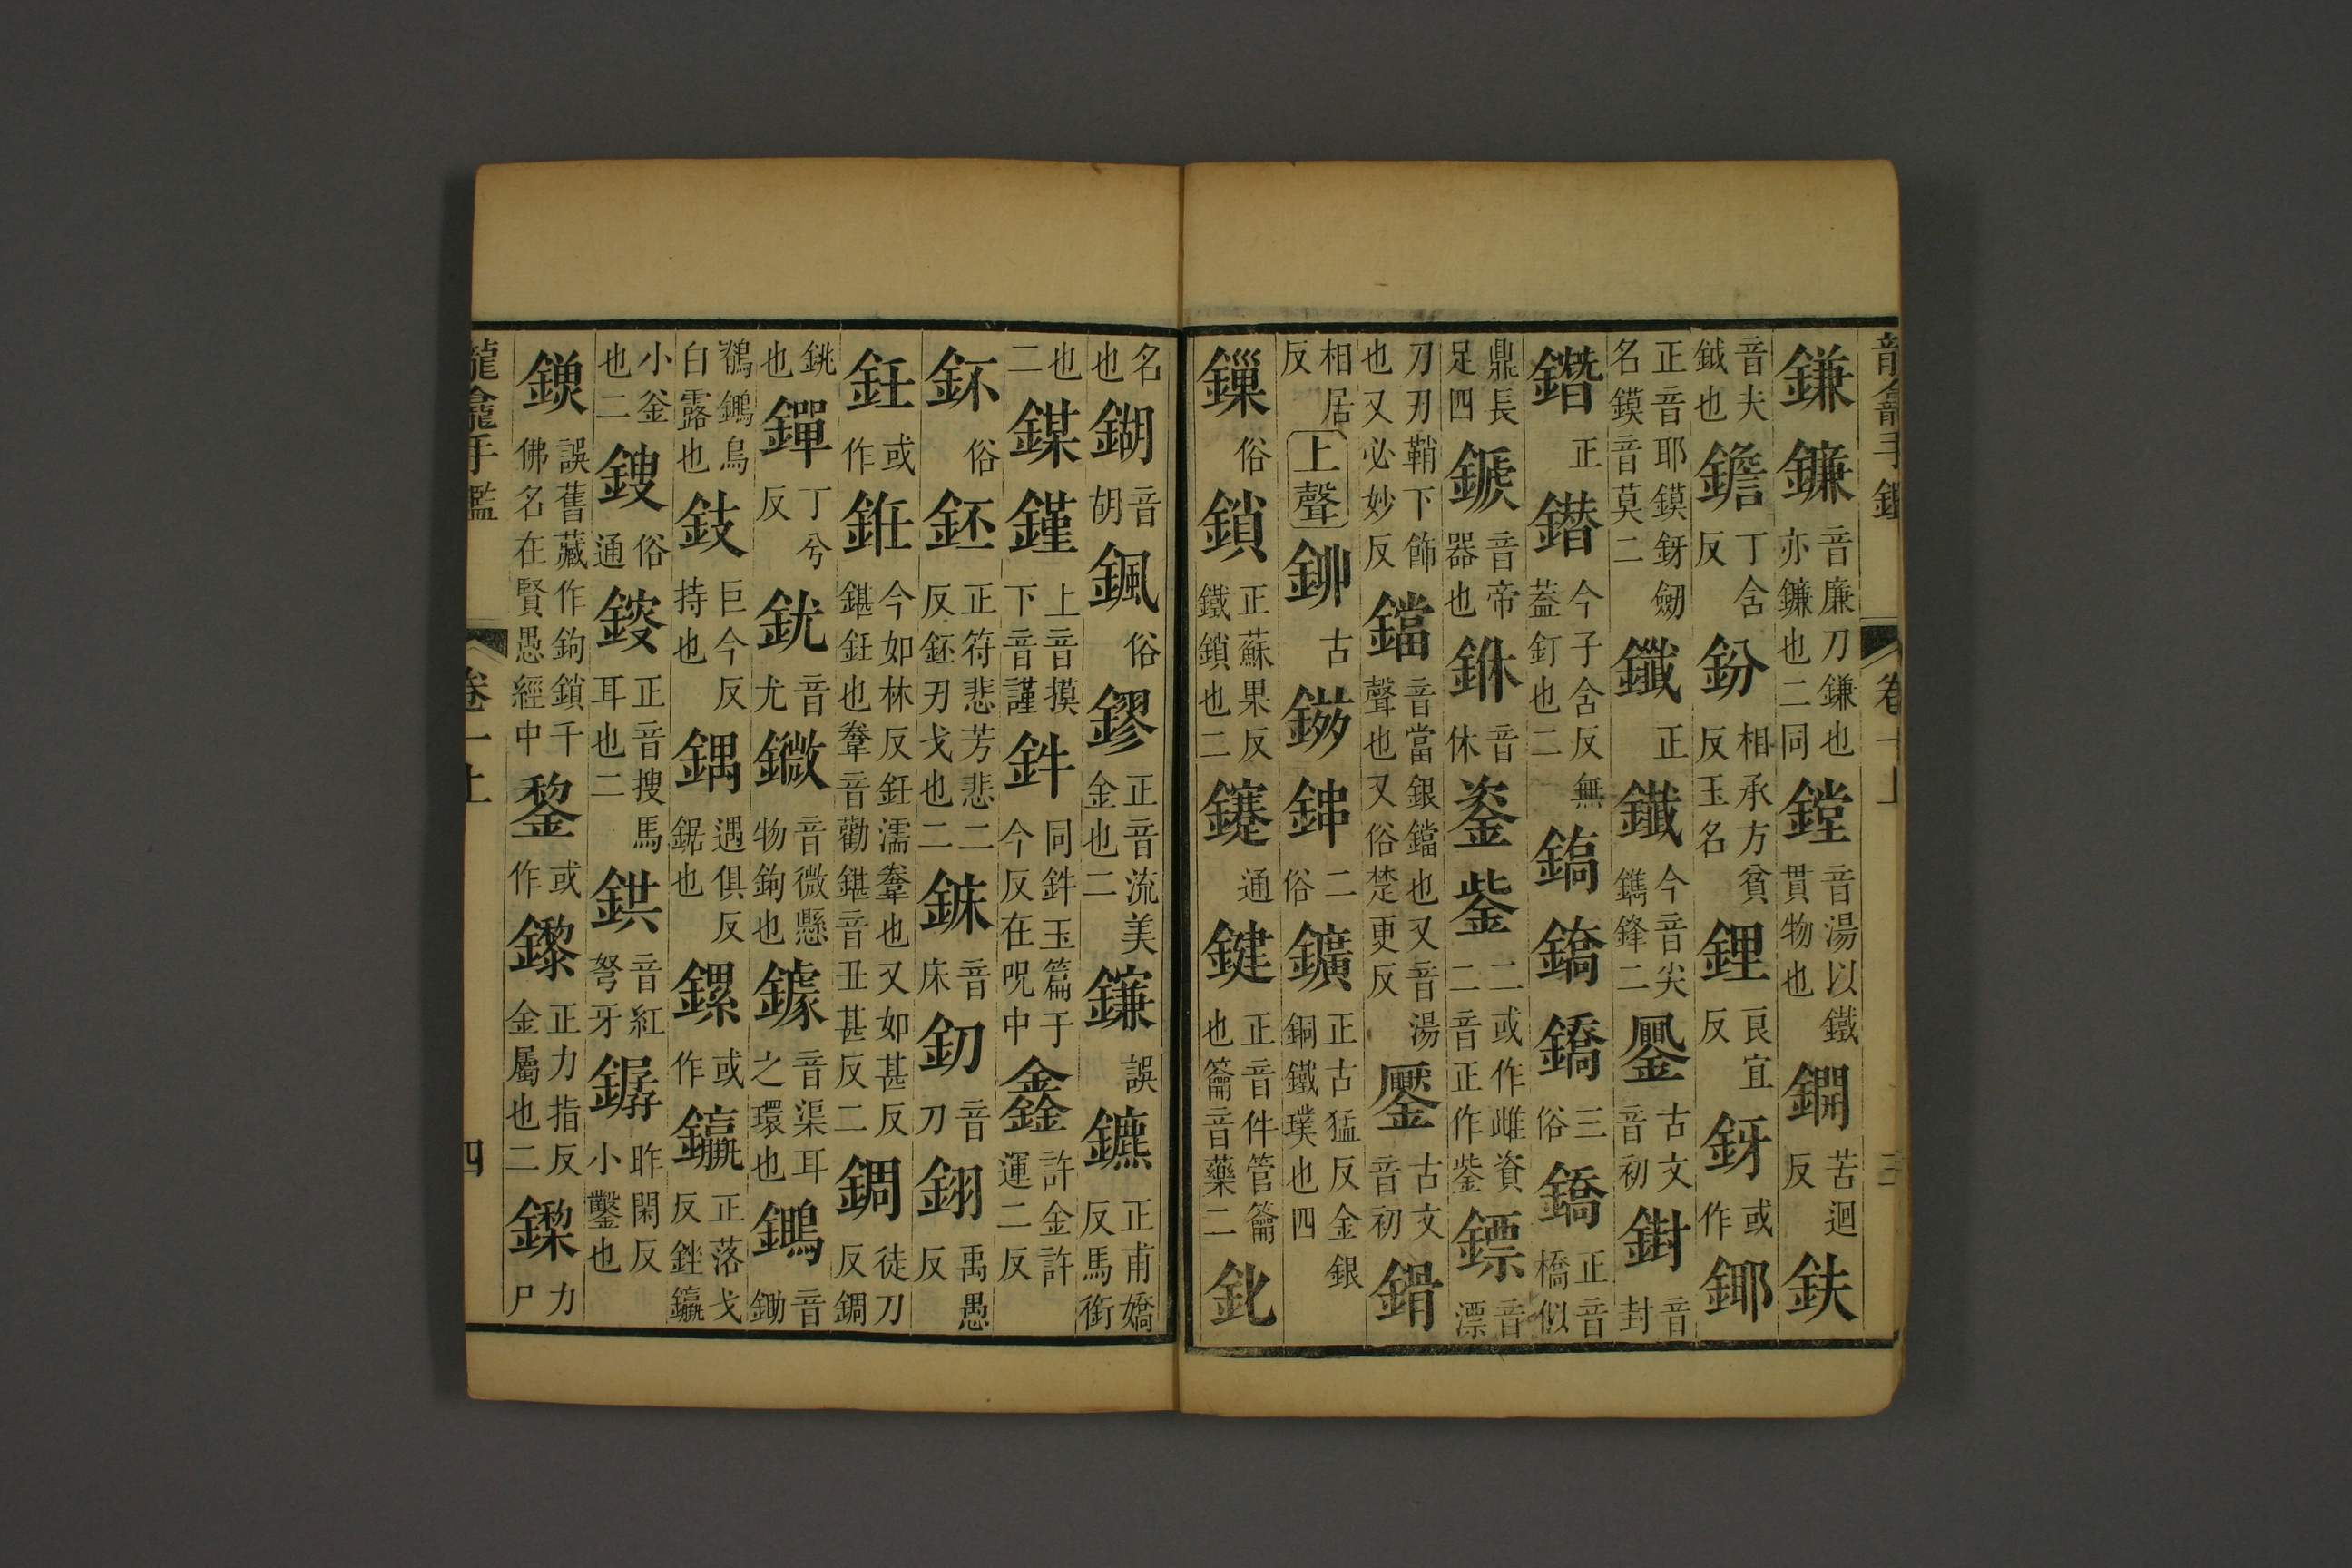 龍龕手鑑 卷一上 三
鎌鐮音廉刀鎌也亦鐮也二同鏜音湯以鐵貫物也鐦苦迴反鈇
音夫鉞也鐺丁含反鈖相承方貧反玉名鋰良宜反釾或作鎁
正音耶鏌釾劒名鏌音莫二鑯正鐵今音尖鐫鋒二璺古文音初𨥧音封
鐕正鐟今子含反無蓋釘也二鎬鐈鐈俗三鐈正音橋似
鼎長足四鍭音帝器也銝音休鋈鈭二或作雌資二音正作鈭鏢音漂
刀刃鞘下飾也又必妙反鐺音當銀鐺也又音湯聲也又俗楚更反璺古文音初鍣
相居反上聲鉚古鐋鉮二俗鑛正古猛反金銀銅鐵璞也四
鏁俗鎖正蘇果反鐵鎖也二鑳通鍵正音件管籥也籥音藥二鈋
名也鍸音胡鍽俗鏐正音流美金也二鎌誤鑣正甫嬌反馬銜
也二鍱鏷上音摸下音謹鉡同鉡玉篇于今反在呪中鑫許金許運二反
鉌俗鉟正符悲芳悲二反鉟刃戈也二銤音床釖音刀鈅禹愚反
鈓或作銋今如林反鈓濡鍪也又如甚反鍖鈓也鍪音勸鍖音丑甚反二錭徒刀反錭
銚也鏎丁兮反鈂音尤鏾音微懸物鉤也鐻音渠耳之環也鎢音鋤
鶺鷜鳥白露也鈘巨今反持也鍝遇俱反鋸也鏍或作鑘正落戈反銼鑘
小釜也二鎪俗通鋑正音搜馬耳也二鉷音紅弩牙鏟昨閑反小鑿也
鎮誤舊藏作鉤鎖千佛名在賢愚經中鋫或作鏫正力指反金屬也二鏫力尸
龍龕手鑑 卷一上 四